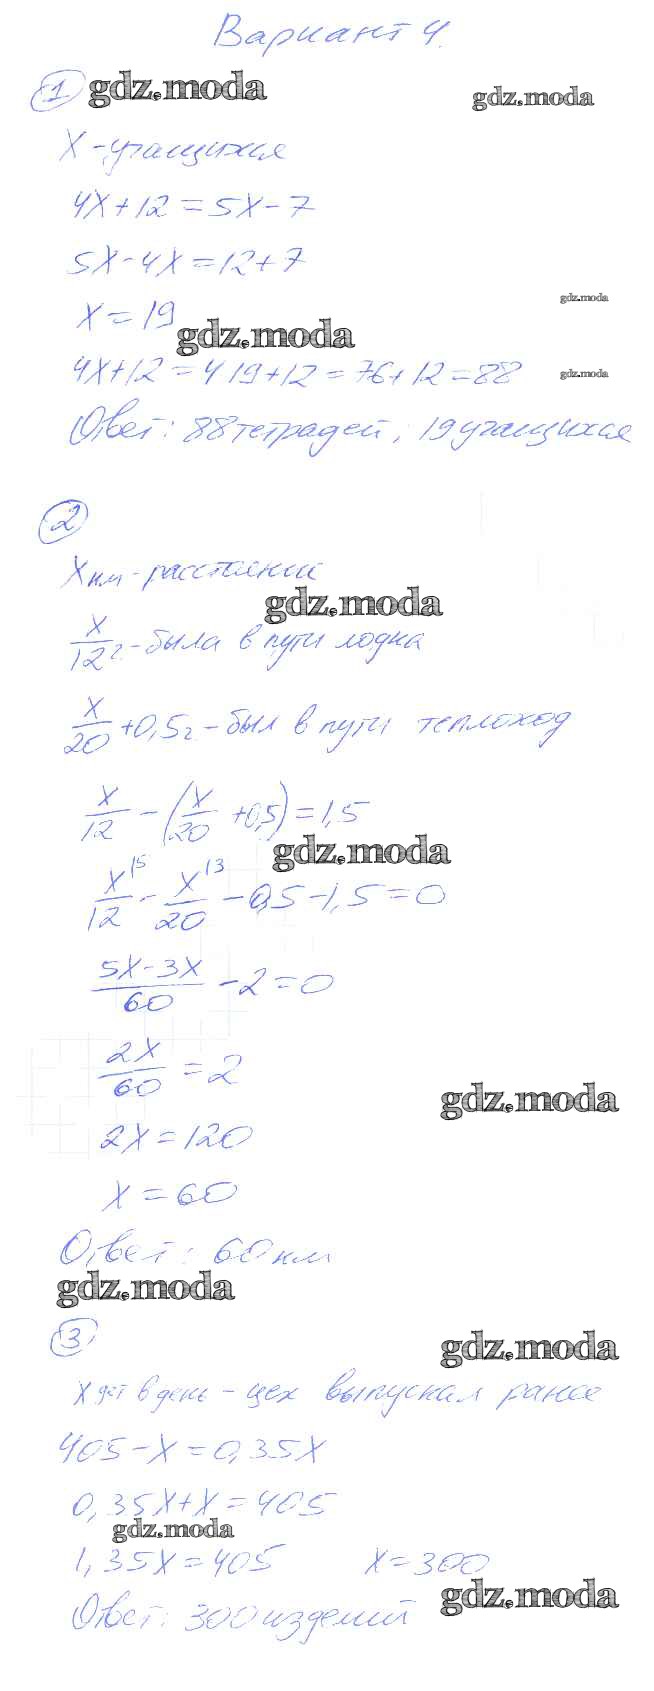 Вариант 4.
1 gdz.moda gdz.moda
X - учащихся
4X+12=5X-7
5X-4X=12+7
gdz.moda
X=19
gdz.moda
4X+12=4 19+12=76+12=88 gdz.moda
Ответ: 88 тетрадей; 19 учащихся
2
X км - расстояние
gdz.moda
X/12 ч - была в пути лодка
X/20 +0,5 ч - был в пути теплоход
X/12 - (X/20 +0,5)=1,5
gdz.moda
X|5/12 - X|3/20 -0,5-1,5=0
5X-3X/60 -2=0
2X/60 =2
gdz.moda
2X=120
X=60
Ответ: 60 км
gdz.moda
3
gdz.moda
X дет в день - цех выпускал ранее
405-X=0,35X
0,35X+X=405
gdz.moda
1,35X=405 X=300
gdz.moda
Ответ: 300 изделий